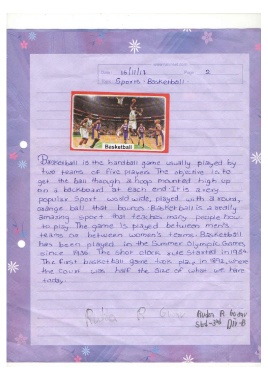 Date: 16/11/13 Page: 2
Sports - Basketball
Basketball
Basketball is the handball game usually played by
two teams of five players. The objective is to
get the ball through a hoop mounted high up
on a backboard at each end. It is a very
popular sport world wide, played with a round,
orange ball that bounces. Basketball is a really
amazing sport that teaches many people how
to play. The game is played between men's
teams or between women's teams. Basketball
has been played in the Summer Olympic Games
since 1936. The shot clock rule started in 1954
The first basketball game took place in 1892, where
the court was half the size of what we have
today.